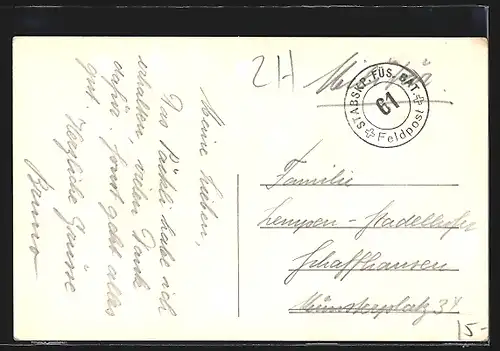 Meine Lieben,
Das Päckli habe ich
erhalten, vielen Dank
dafür. Sonst geht alles
gut.
Herzliche Grüsse
Bruno
2H
STABSKP. FÜS. BAT.
61
Feldpost
Familie
Schaffhausen
Münsterplatz 34
15.-